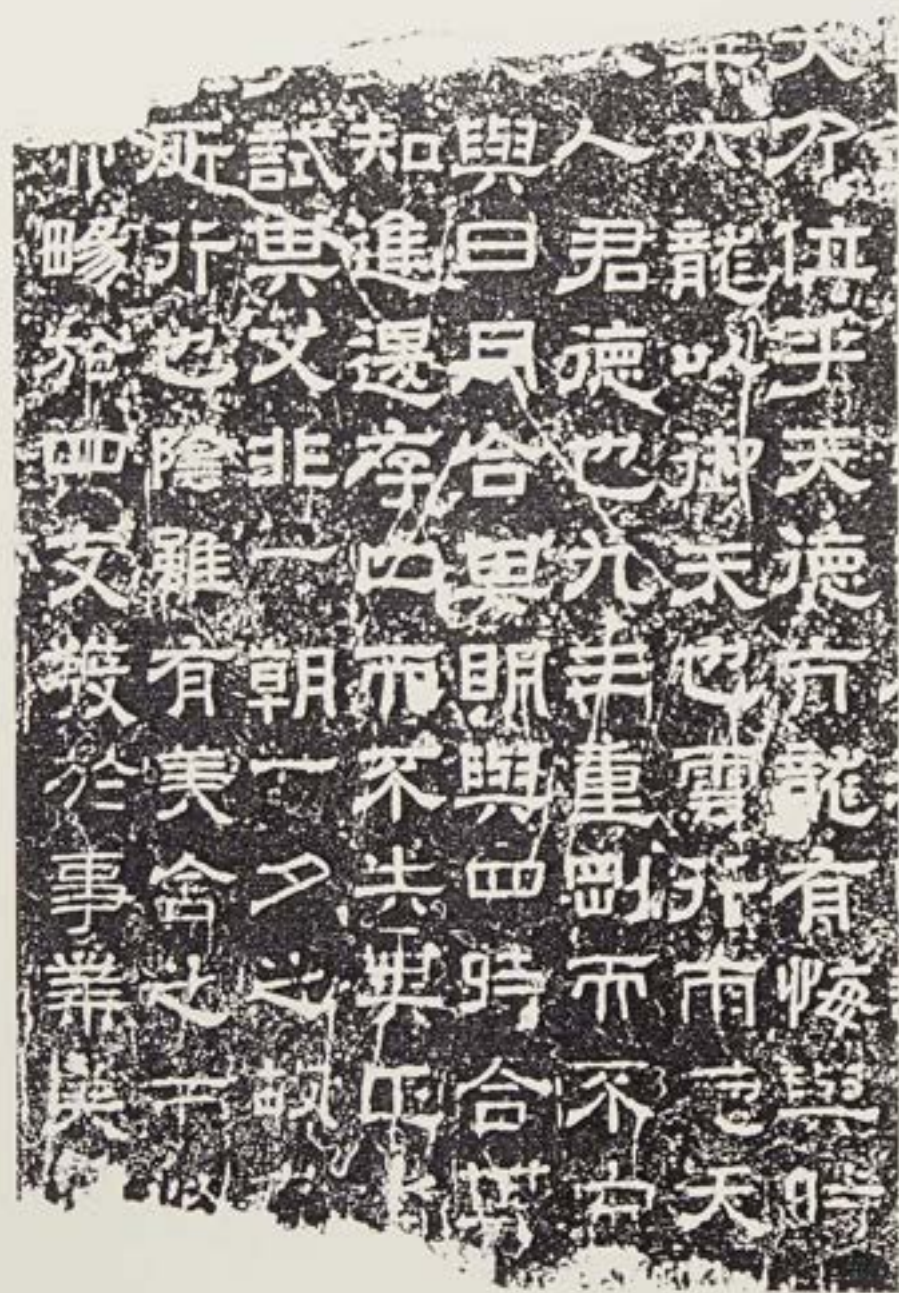 天乃位乎天德亢龍有悔與時
乘六龍以御天也雲行雨施天
人君德也九三重剛而不中
與日月合其明與四時合其
知進退存亡而不失其正
試其父非一朝一夕之故
所行也陰雖有美含之
暢於四支發於事業美